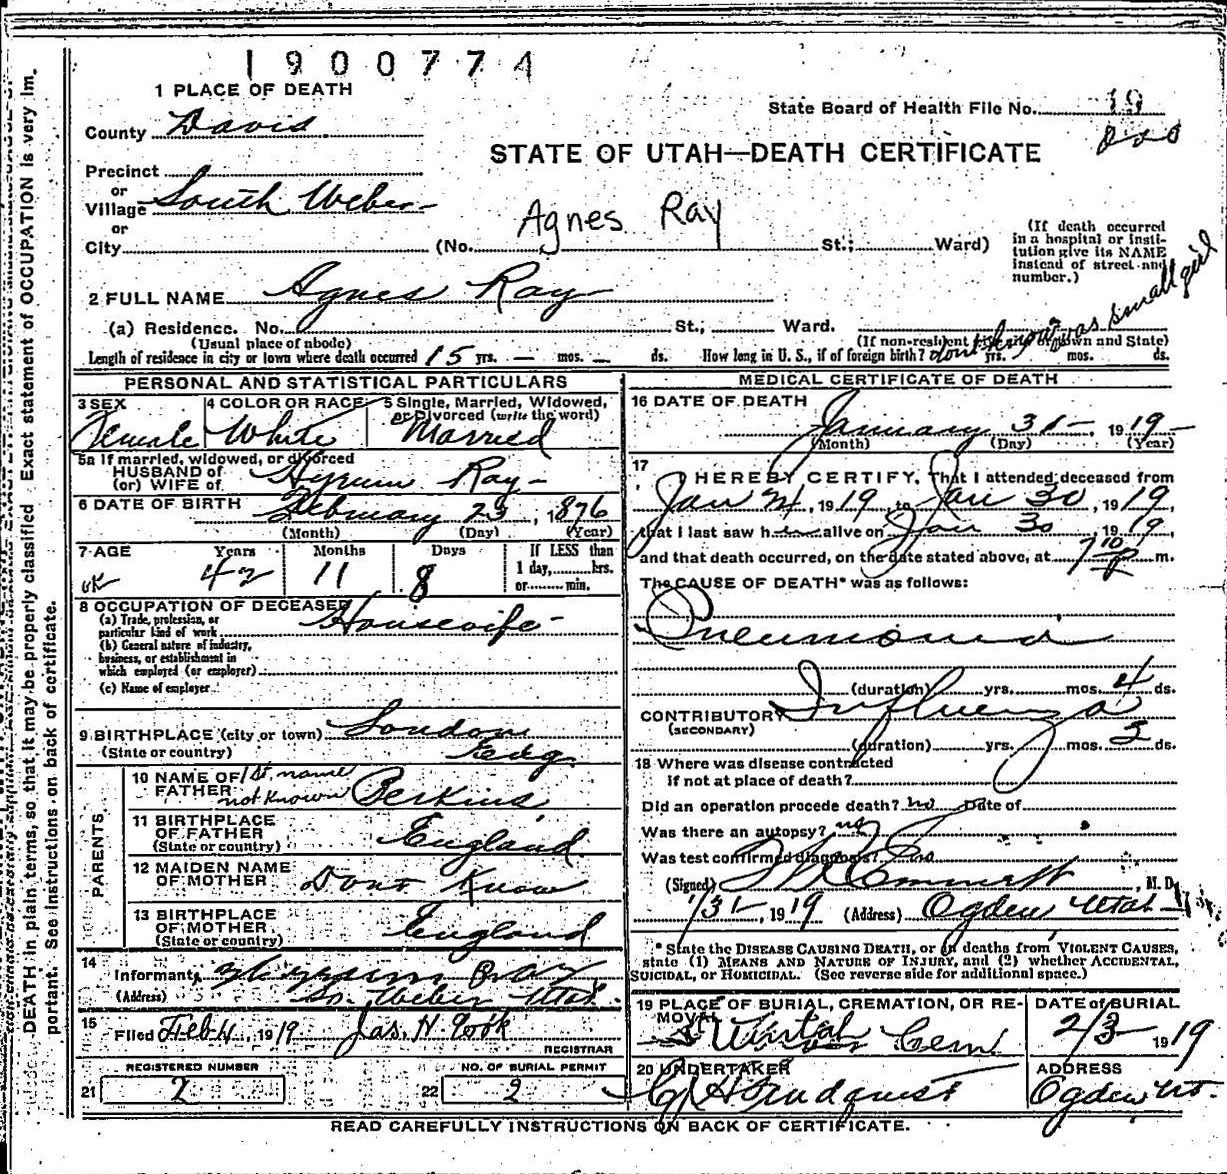 1900774
1 PLACE OF DEATH
State Board of Health File No. 19
County Davis
STATE OF UTAH—DEATH CERTIFICATE
Precinct
or
Village South Weber
or
City (No. Agnes Ray St.; Ward)
(If death occurred in a hospital or institution give its NAME instead of street and number.)
2 FULL NAME Agnes Ray
(a) Residence. No. St., Ward.
(Usual place of abode) (If non-resident give city or town and State)
Length of residence in city or town where death occurred 15 yrs. — mos. — ds. How long in U. S., if of foreign birth? dont know was small girl yrs. mos. ds.
PERSONAL AND STATISTICAL PARTICULARS
3 SEX Female
4 COLOR OR RACE White
5 Single, Married, Widowed, or Divorced (write the word) Married
5a If married, widowed, or divorced
HUSBAND of
(or) WIFE of Hyrum Ray
6 DATE OF BIRTH February 23, 1876
(Month) (Day) (Year)
7 AGE Years Months Days If LESS than
ok 42 11 8 1 day, hrs.
or min.
8 OCCUPATION OF DECEASED
(a) Trade, profession, or
particular kind of work Housewife
(b) General nature of industry,
business, or establishment in
which employed (or employer)
(c) Name of employer
9 BIRTHPLACE (city or town) London
(State or country) Eng.
PARENTS
10 NAME OF FATHER 1st name not known Perkins
11 BIRTHPLACE
OF FATHER England
(State or country)
12 MAIDEN NAME
OF MOTHER Dont Know
13 BIRTHPLACE
OF MOTHER England
(State or country)
14
Informant Hyrum Ray
(Address) So. Weber Utah.
15
Filed Feb 4, 1919 Jas. H. Cook
REGISTRAR
REGISTERED NUMBER NO. OF BURIAL PERMIT
21 2 22 2
MEDICAL CERTIFICATE OF DEATH
16 DATE OF DEATH
January 31 1919
(Month) (Day) (Year)
17
I HEREBY CERTIFY, That I attended deceased from
Jan 24, 1919, to Jan 30, 1919,
that I last saw her alive on Jan 30 1919,
and that death occurred, on the date stated above, at 7 10 P m.
The CAUSE OF DEATH* was as follows:
Pneumonia
(duration) yrs. mos. 4 ds.
CONTRIBUTORY Influenza
(SECONDARY)
(duration) yrs. mos. 3 ds.
18 Where was disease contracted
if not at place of death?
Did an operation precede death? no Date of
Was there an autopsy? no
Was test confirmed diagnosis?
(Signed) Emmett, M. D.
1/31, 1919 (Address) Ogden Utah
* State the DISEASE CAUSING DEATH, or in deaths from VIOLENT CAUSES,
state (1) MEANS AND NATURE OF INJURY, and (2) whether ACCIDENTAL,
SUICIDAL, or HOMICIDAL. (See reverse side for additional space.)
19 PLACE OF BURIAL, CREMATION, OR REMOVAL DATE of BURIAL
Cem 2/3 1919
20 UNDERTAKER ADDRESS
Ogden Ut.
READ CAREFULLY INSTRUCTIONS ON BACK OF CERTIFICATE.
DEATH in plain terms, so that it may be properly classified Exact statement of OCCUPATION is very im-
portant. See instructions on back of certificate.